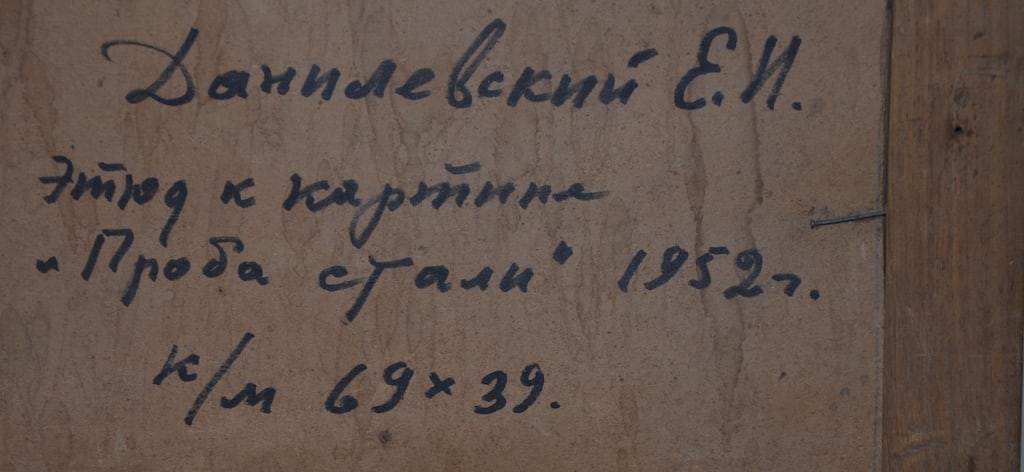 Данилевский Е.И.
Этюд к картине
"Проба стали" 1952 г.
к/м 69 х 39.